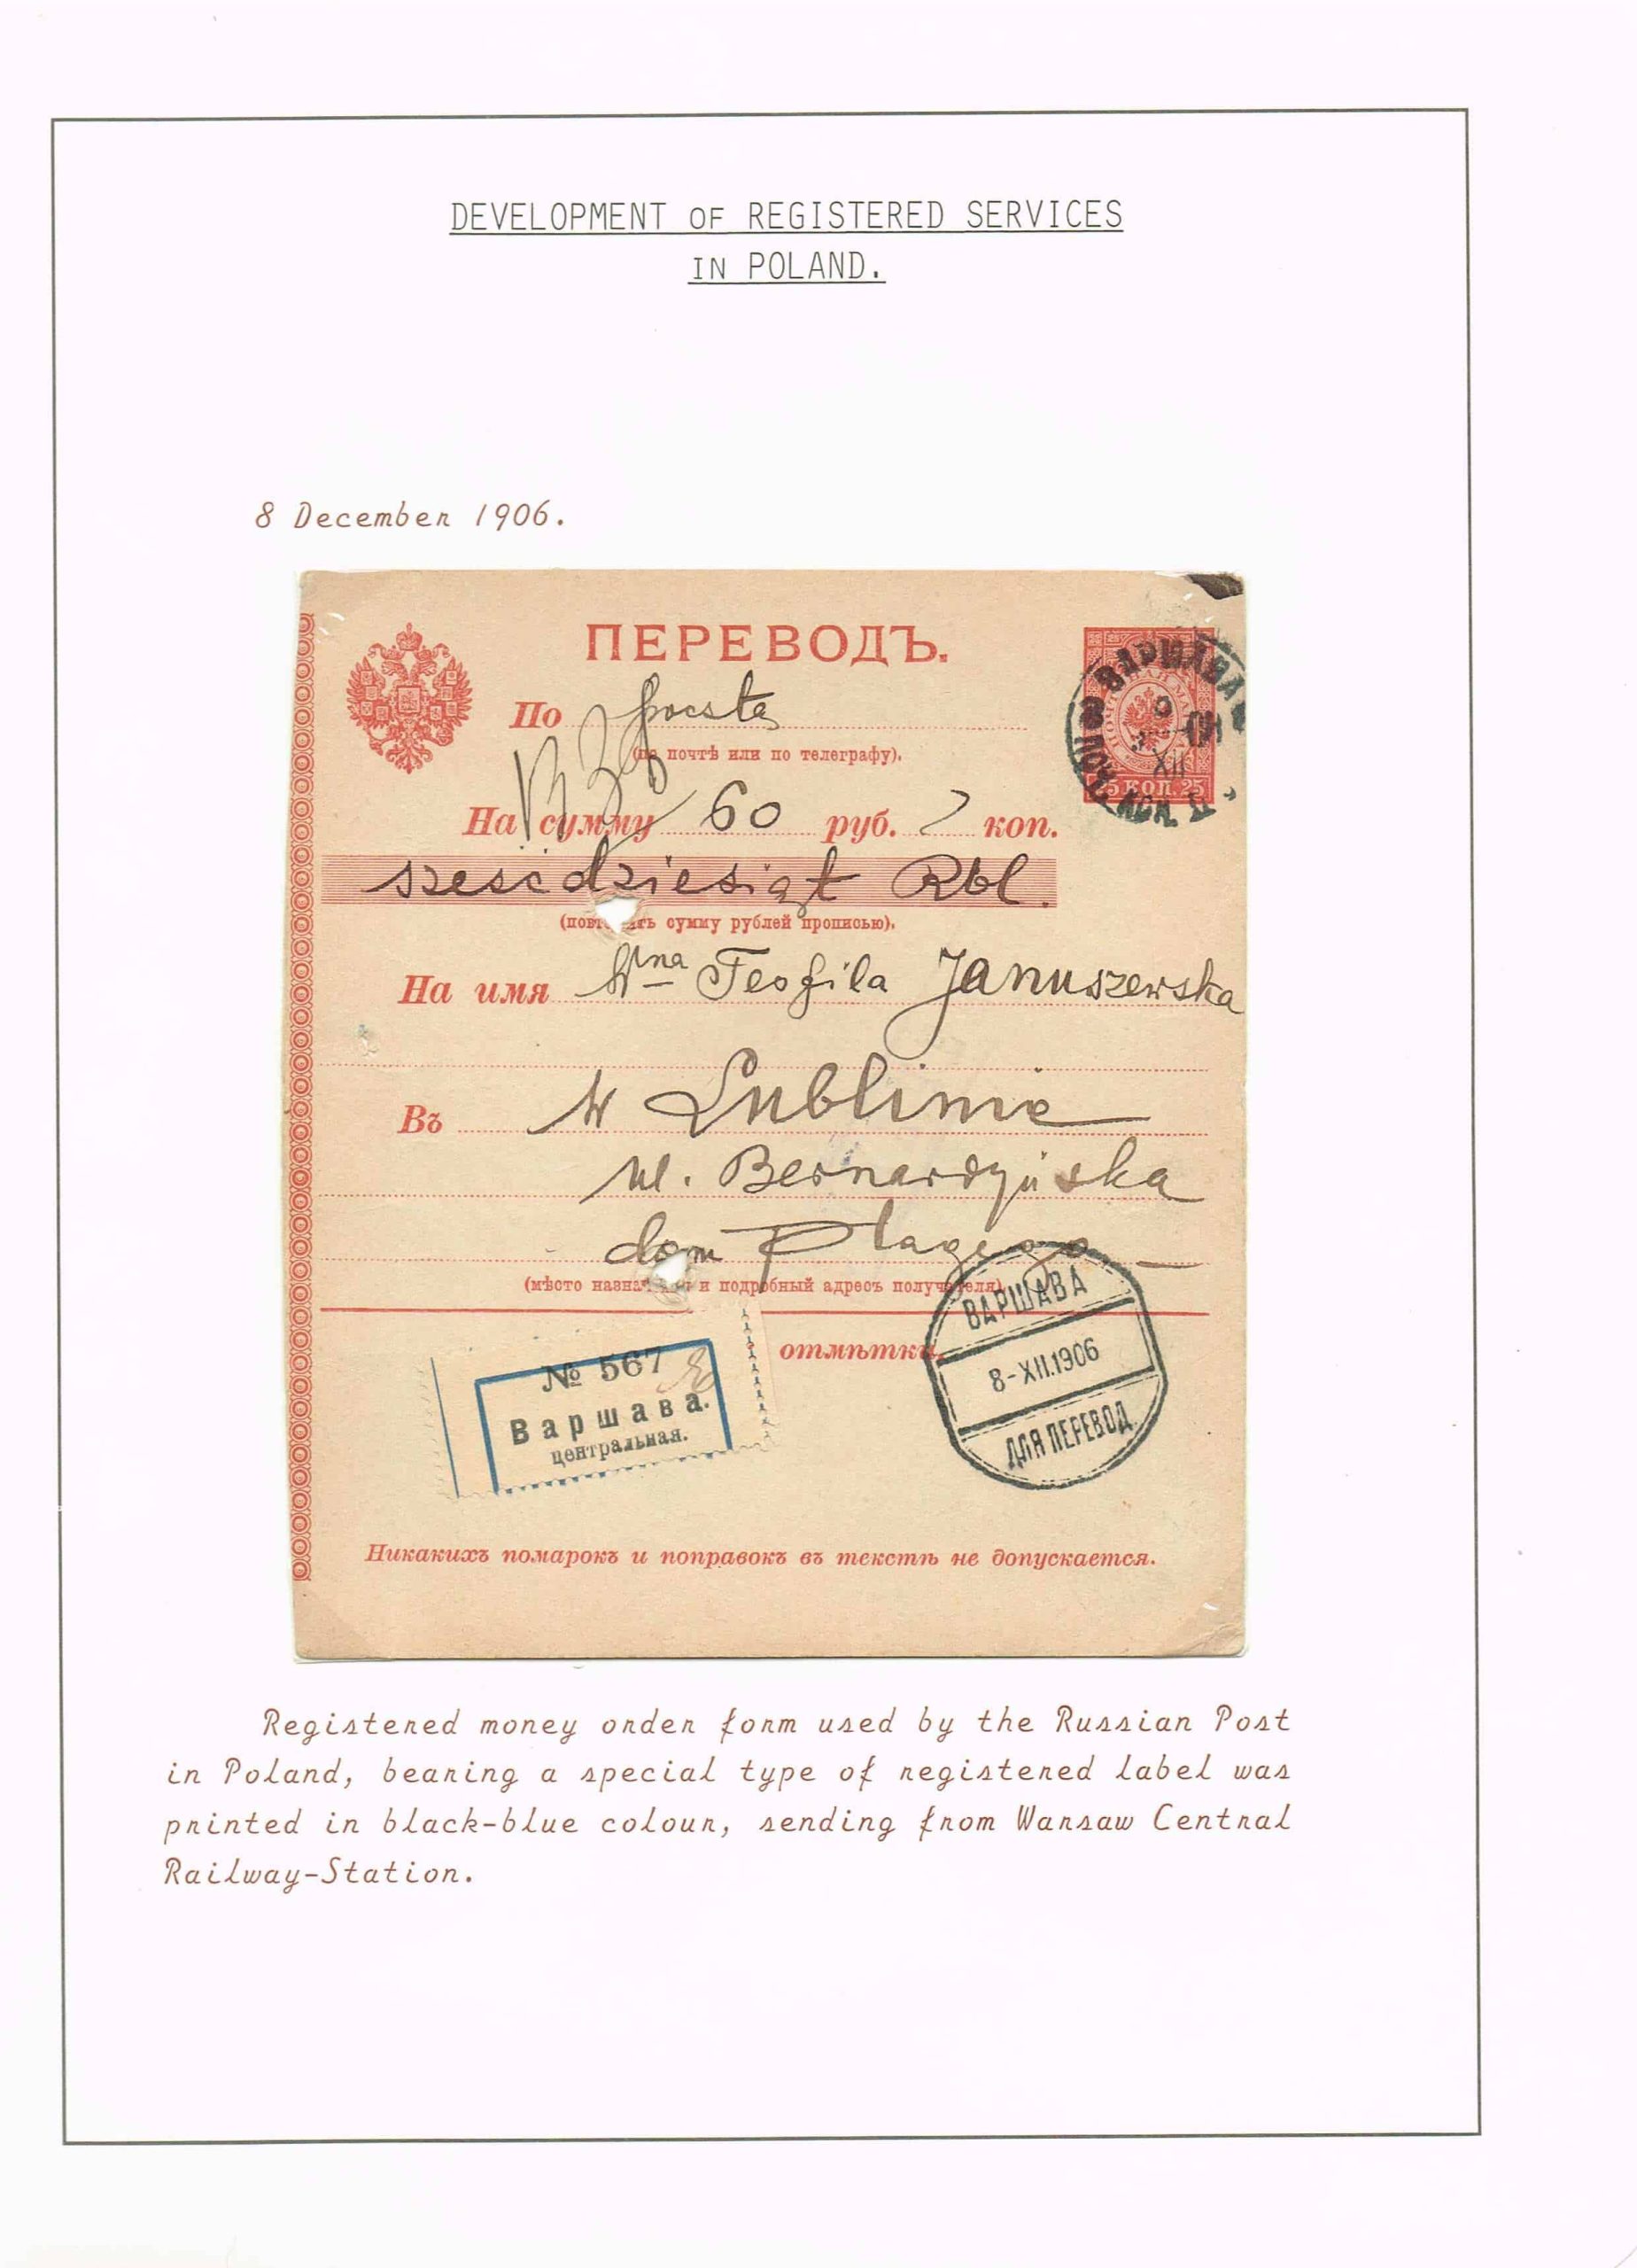 DEVELOPMENT OF REGISTERED SERVICES
IN POLAND.
8 December 1906.
ПЕРЕВОДЪ.
По poczta
(по почтѣ или по телеграфу).
На сумму 60 руб. коп.
sześćdziesiąt Rbl.
сумму рублей прописью).
На имя Wna Teofila Januszewska
Въ w Lublinie
ul. Bernardyńska
dom Plagego
(мѣсто и подробный адресъ получателя)
отмѣтки.
ВАРШАВА
8-XII.1906
ДЛЯ ПЕРЕВОД.
№ 567
Варшава.
центральная.
ВАРШАВА
XII
25 КОП. 25
Никакихъ помарокъ и поправокъ въ текстѣ не допускается.
Registered money order form used by the Russian Post
in Poland, bearing a special type of registered label was
printed in black-blue colour, sending from Warsaw Central
Railway-Station.